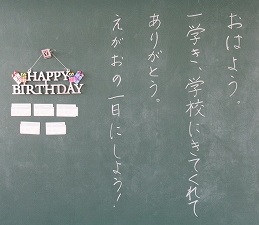 おはよう。
一学き、学校にきてくれて
ありがとう。
えがおの一日にしよう!
HAPPY
BIRTHDAY